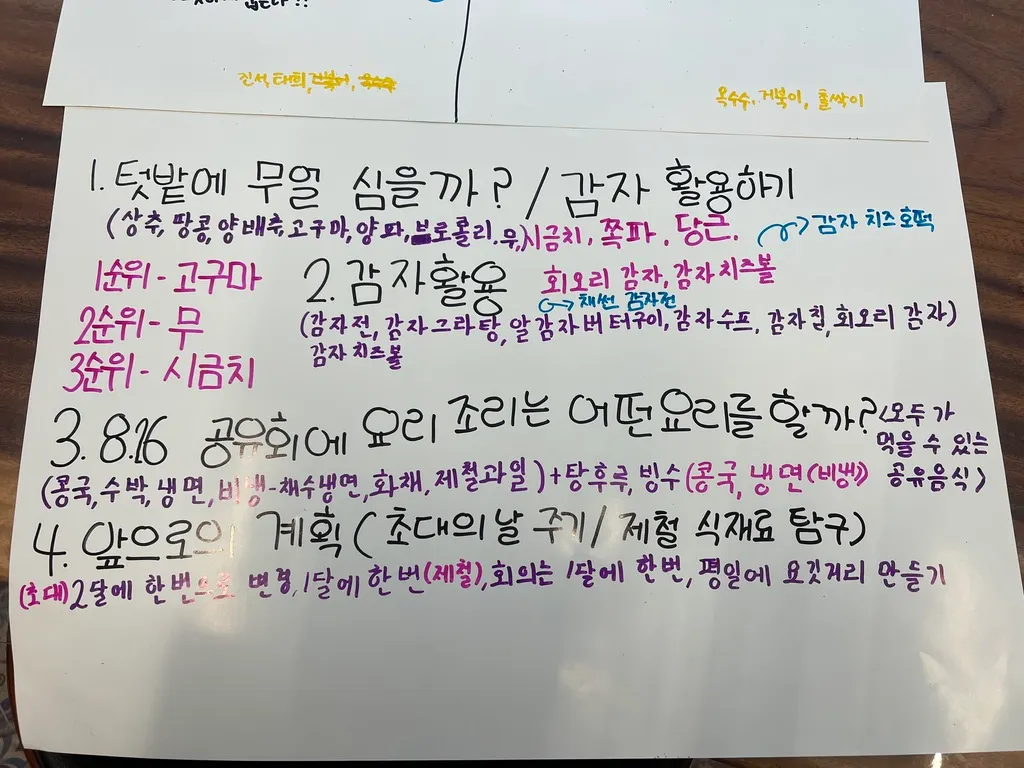 진석, 태희,
옥수수, 거북이, 훌싹이
1. 텃밭에 무얼 심을까? / 감자 활용하기
(상추, 땅콩, 양배추, 고구마, 양파, 브로콜리, 무,) 시금치, 쪽파, 당근.
→ 감자 치즈호떡
1순위 - 고구마
2순위 - 무
3순위 - 시금치
2. 감자활용
회오리 감자, 감자치즈볼
→ 채썬 감자전
(감자전, 감자그라탕, 알감자버터구이, 감자수프, 감자칩, 회오리 감자)
감자치즈볼
3. 8.26 공유회에 요리 조리는 어떤요리를 할까?
(모두가 먹을 수 있는 공유음식)
(콩국, 수박, 냉면, 비냉-채수냉면, 화채, 제철과일) + 탕후루, 빙수 (콩국, 냉면(비냉))
4. 앞으로의 계획 (초대의날 주기 / 제철 식재료 탐구)
(초대) 2달에 한번으로 변경, 1달에 한번 (제철), 회의는 1달에 한번, 평일에 요깃거리 만들기